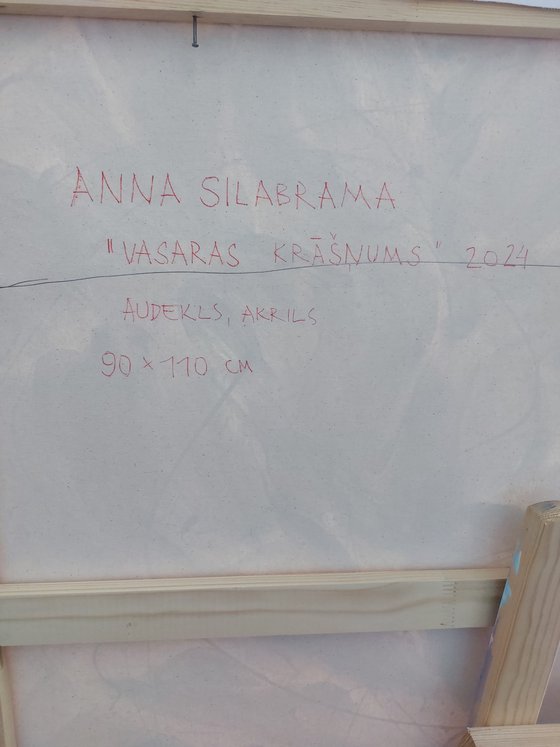 ANNA SILABRAMA
"VASARAS KRĀŠŅUMS" 2024
AUDEKLS, AKRILS
90 × 110 CM